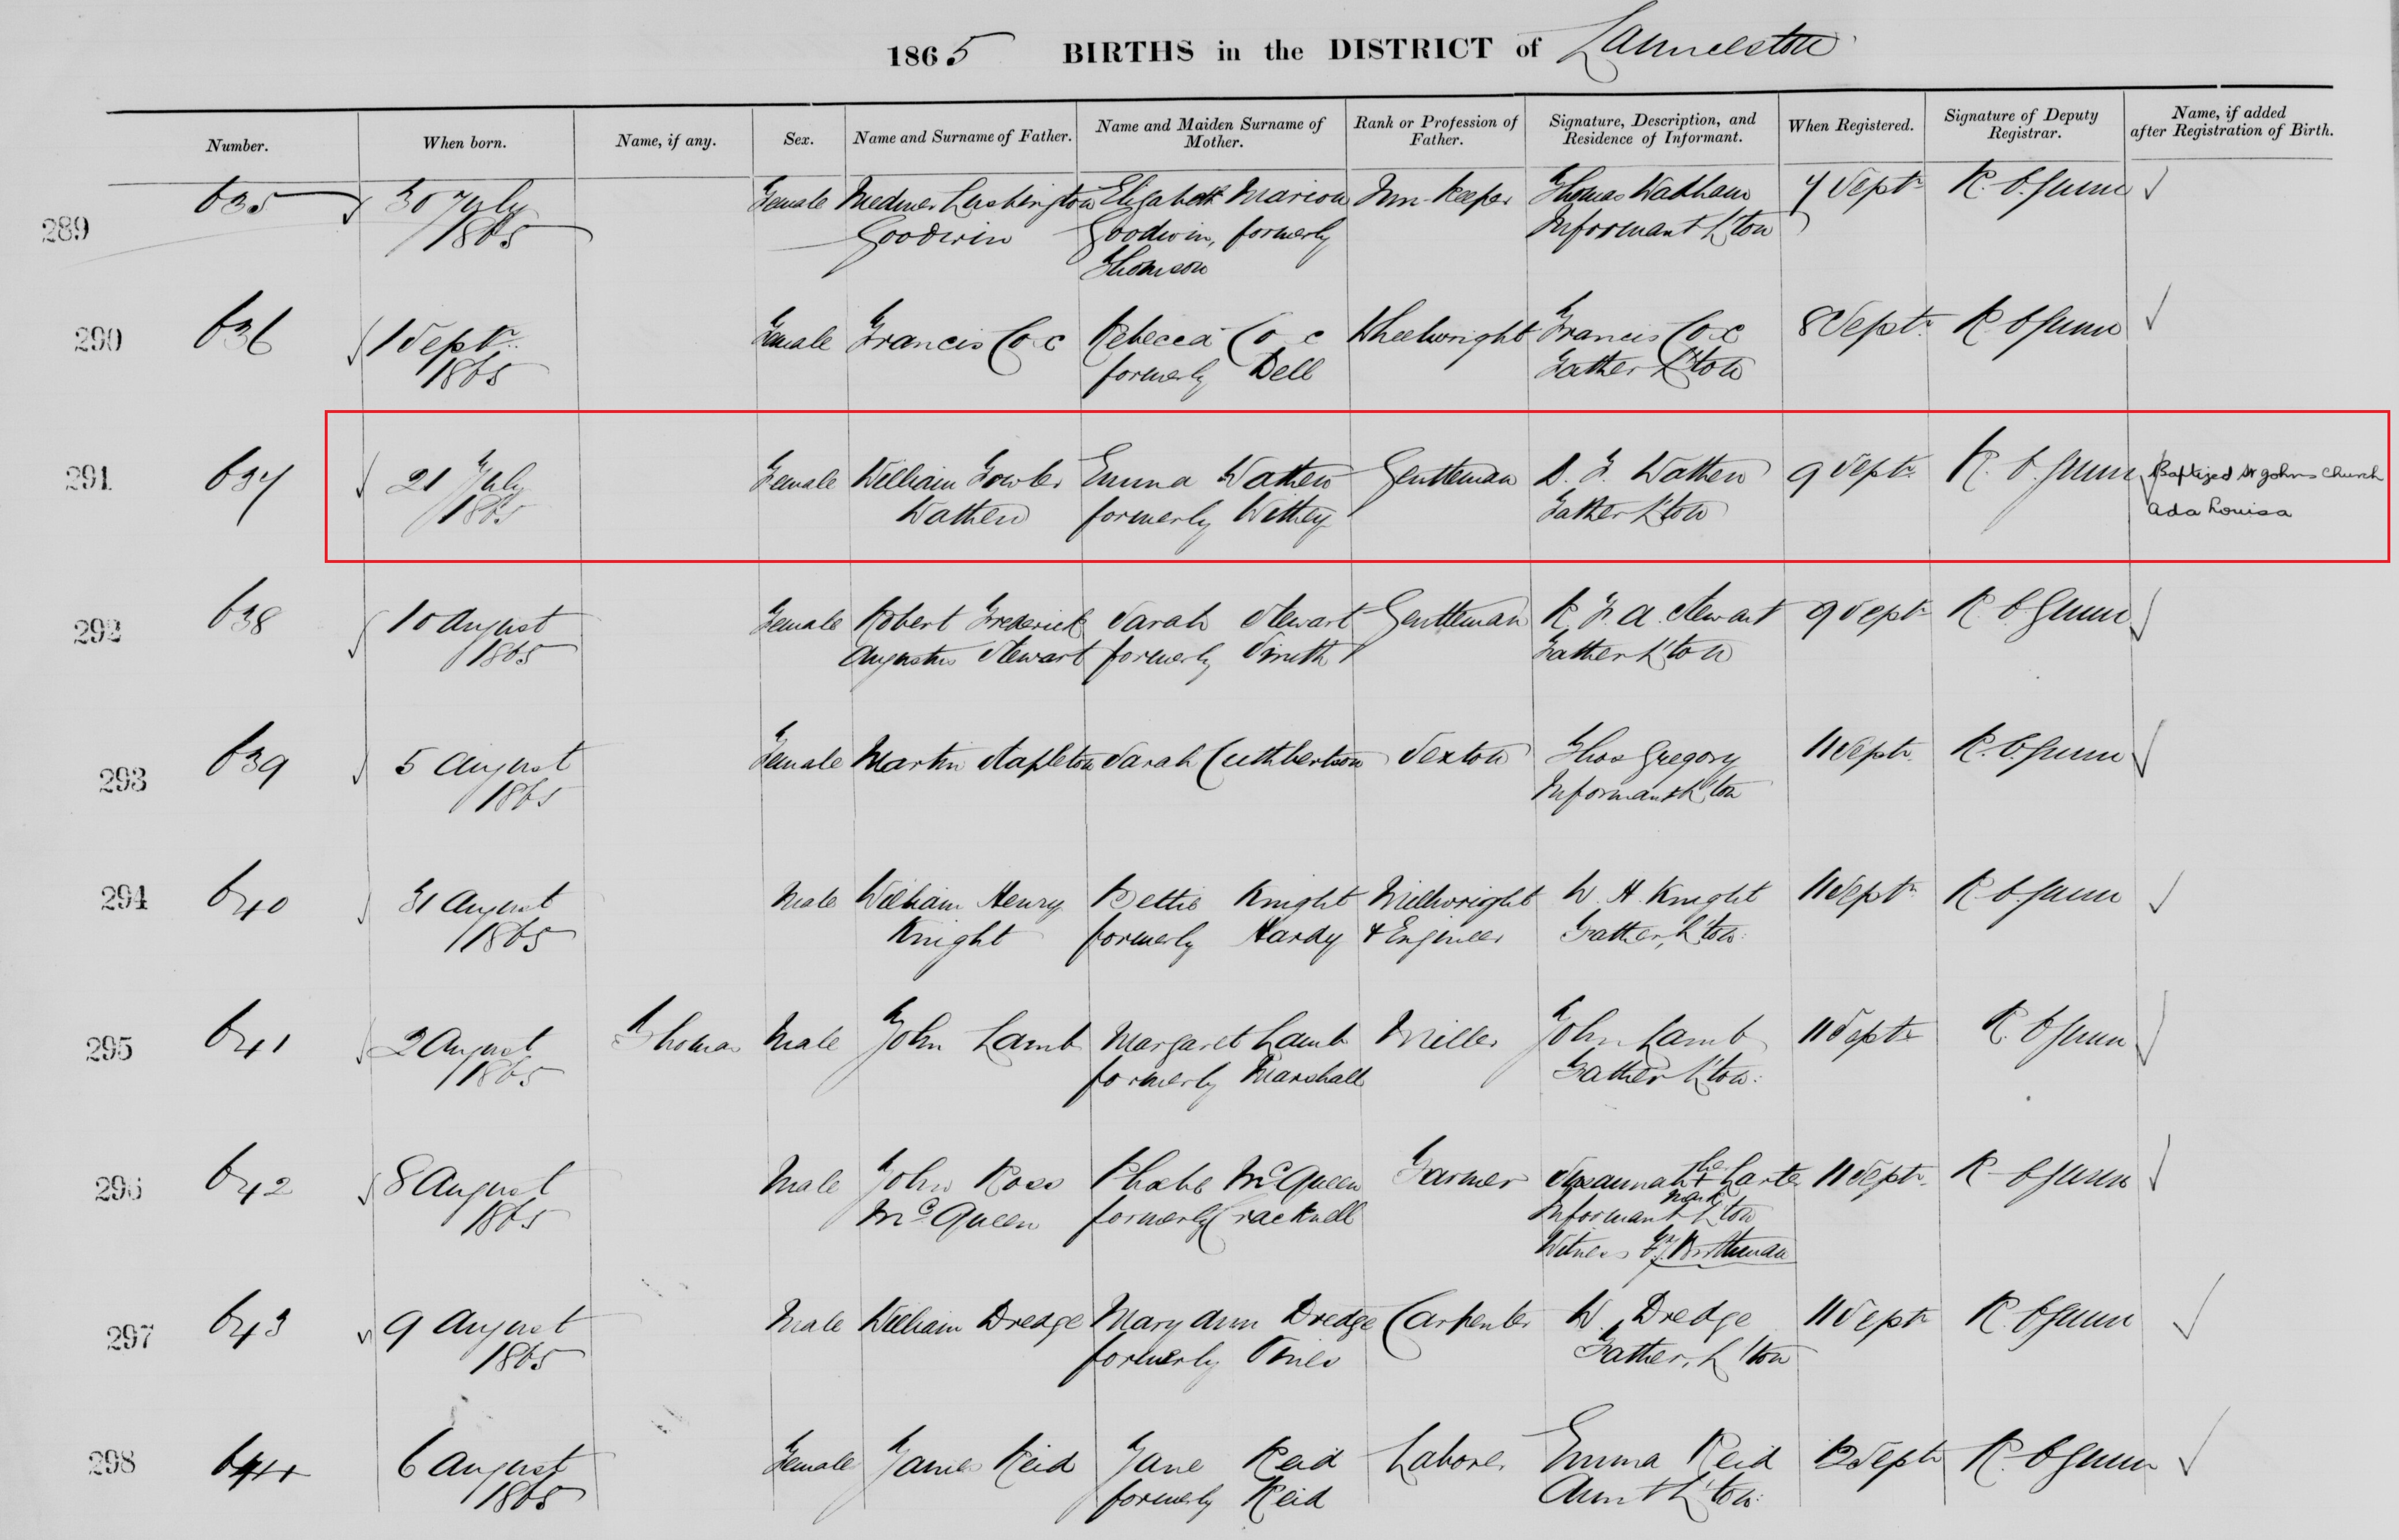 1865 BIRTHS in the DISTRICT of Launceston
Number. When born. Name, if any. Sex. Name and Surname of Father. Name and Maiden Surname of Mother. Rank or Profession of Father. Signature, Description, and Residence of Informant. When Registered. Signature of Deputy Registrar. Name, if added after Registration of Birth.
289 635 30 July Female Lushington Elizabeth Marion Inn-Keeper Thomas Wadham 7 Septr R. C. Gunn
1865 Goodwin Goodwin, formerly Informant L'ton
Thomson
290 636 1 Septr. Female Francis Cox Rebecca Cox Wheelwright Francis Cox 8 Septr. R C Gunn
1865 formerly Dell Father L'ton
291 637 21 July Female William Fowler Emma Wathen Gentleman F. Wathen 9 Septr. R. C. Gunn Baptized St Johns Church
1865 Wathen formerly Withey Father L'ton Ada Louisa
292 638 10 August Female Robert Frederick Sarah Stewart Gentleman R. F. A. Stewart 9 Septr R. C. Gunn
1865 Augustus Stewart formerly Smith Father L'ton
293 639 5 August Female Martin Stapleton Sarah Cuthbertson Sexton Thos Gregory 11 Septr. R. C. Gunn
1865 Informant L'ton
294 640 31 August Male William Henry Bettie Knight Millwright W. H. Knight 11 Septr R. C. Gunn
1865 Knight formerly Hardy & Engineer Father, L'ton:
295 641 2 August Thomas Male John Lamb Margaret Lamb Miller John Lamb 11 Septr R. C Gunn
1865 formerly Marshall Father L'ton:
296 642 8 August Male John Ross Phoebe McQueen Farmer Susannah her + Carter 11 Septr. R C Gunn
mark
1865 McQueen formerly Cracknell Informant L'ton
Witness
297 643 9 August Male William Dredge Mary Ann Dredge Carpenter W. Dredge 11 Septr R. C Gunn
1865 formerly Father, L'ton
298 644 6 August Female James Reid Jane Reid Labore Emma Reid 12 Septr R. C Gunn
1865 formerly Reid Aunt L'ton: